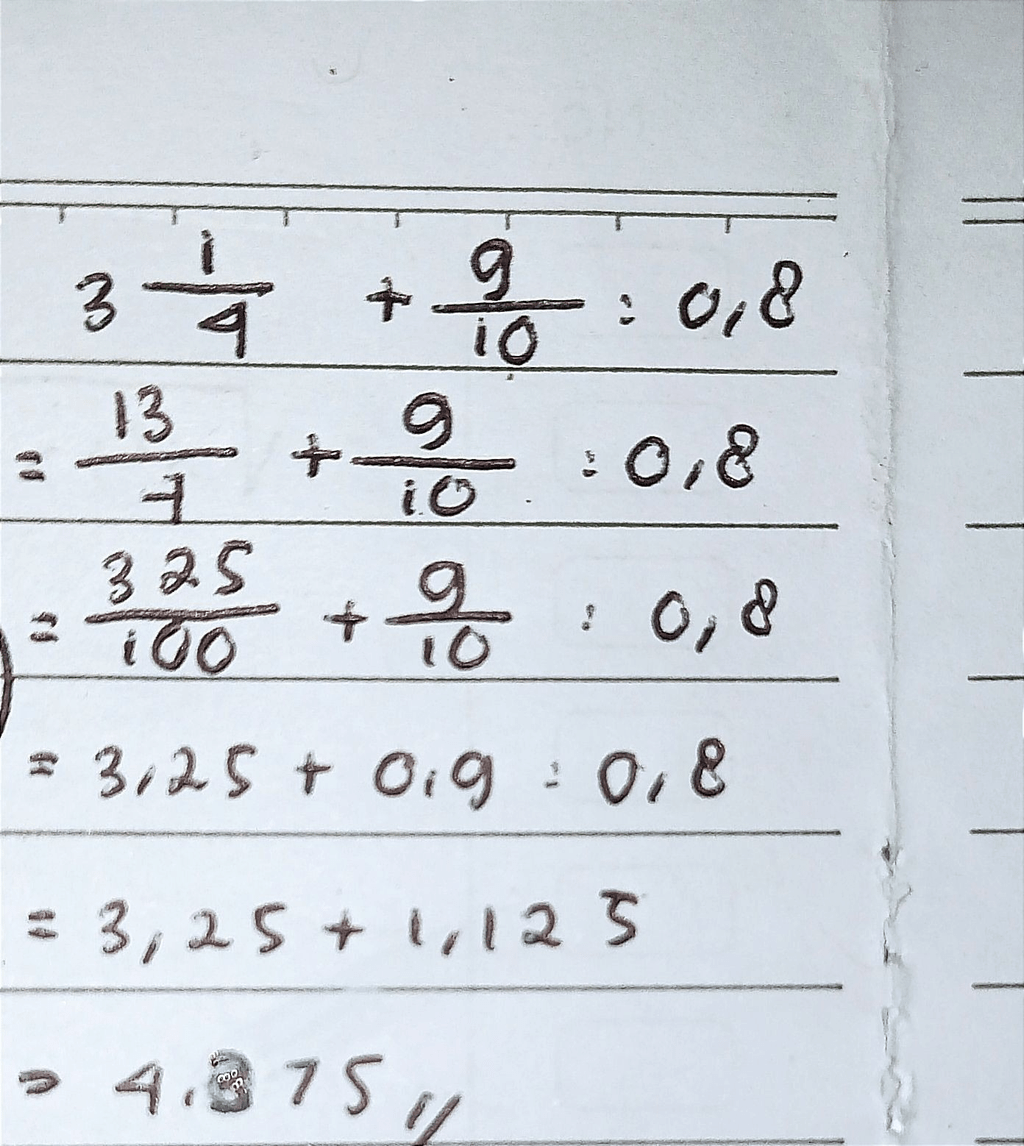 3 1/4 + 9/10 : 0,8
= 13/4 + 9/10 : 0,8
= 325/100 + 9/10 : 0,8
= 3,25 + 0,9 : 0,8
= 3,25 + 1,125
= 4. 75 //